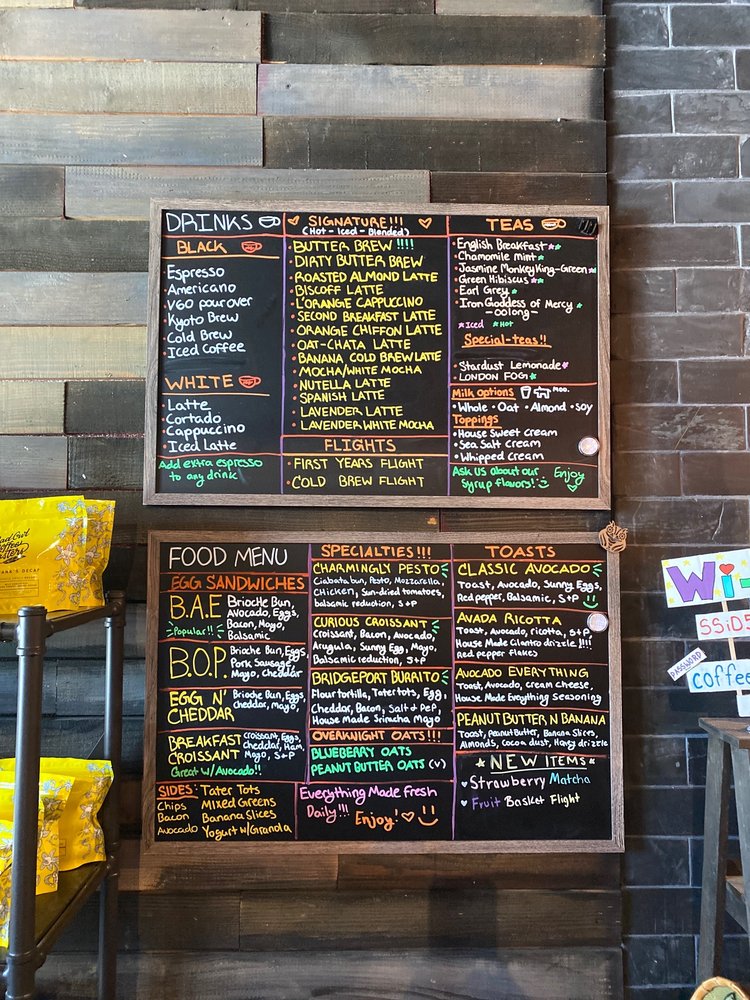 DRINKS
BLACK
Espresso
Americano
V60 pour over
Kyoto Brew
Cold Brew
Iced Coffee
WHITE
Latte
Cortado
Cappuccino
Iced Latte
Add extra espresso
to any drink
SIGNATURE!!!
(Hot - Iced - Blended)
BUTTER BREW !!!!
DIRTY BUTTER BREW
ROASTED ALMOND LATTE
BISCOFF LATTE
L'ORANGE CAPPUCCINO
SECOND BREAKFAST LATTE
ORANGE CHIFFON LATTE
OAT-CHATA LATTE
BANANA COLD BREW LATTE
MOCHA/WHITE MOCHA
NUTELLA LATTE
SPANISH LATTE
LAVENDER LATTE
LAVENDER WHITE MOCHA
FLIGHTS
FIRST YEARS FLIGHT
COLD BREW FLIGHT
TEAS
English Breakfast
Chamomile mint
Jasmine Monkey King-Green
Green Hibiscus
Earl Grey
Iron Goddess of Mercy
-oolong-
Iced Hot
Special-teas!!
Stardust Lemonade
LONDON FOG
Milk options Moo.
Whole • Oat • Almond • Soy
Toppings
House Sweet cream
Sea Salt cream
Whipped cream
Ask us about our
Syrup flavors!
Enjoy
FOOD MENU
EGG SANDWICHES
B.A.E
Popular!!
Brioche Bun,
Avocado, Eggs,
Bacon, Mayo,
Balsamic
B.O.P
Brioche Bun, Eggs,
Pork Sausage,
Mayo, Cheddar
EGG N'
CHEDDAR
Brioche Bun, Eggs,
Cheddar, Mayo,
BREAKFAST
CROISSANT
Croissant, Eggs,
Cheddar, Ham,
Mayo, S+P
Great w/Avocado!!
SIDES: Tater Tots
Chips Mixed Greens
Bacon Banana Slices
Avocado Yogurt w/Granola
SPECIALTIES!!!
CHARMINGLY PESTO
Ciabatta bun, Pesto, Mozzarella,
CHICKEN, Sun-dried tomatoes,
balsamic reduction, S+P
CURIOUS CROISSANT
Croissant, Bacon, Avocado,
Arugula, Sunny Egg, Mayo,
Balsamic reduction, S+P
BRIDGEPORT BURRITO
Flour tortilla, Tater tots, Egg,
Cheddar, Bacon, Salt & Pep,
House Made Sriracha Mayo
OVERKNIGHT OATS!!!
BLUEBERRY OATS
PEANUT BUTTER OATS (V)
Everything Made Fresh
Daily!!! Enjoy!
TOASTS
CLASSIC AVOCADO
Toast, Avocado, Sunny Eggs,
Red pepper, Balsamic, S+P
AVADA RICOTTA
Toast, Avocado, ricotta, S+P
House Made Cilantro drizzle !!!!
Red pepper flakes
AVOCADO EVERYTHING
Toast, Avocado, cream cheese,
House Made Everything Seasoning
PEANUT BUTTER N BANANA
Toast, Peanut Butter, Banana Slices,
Almonds, Cocoa dust, Honey drizzle
NEW ITEMS
Strawberry Matcha
Fruit Basket Flight
Wi-
SSiD:
PASSWORD
coffee
DECAF